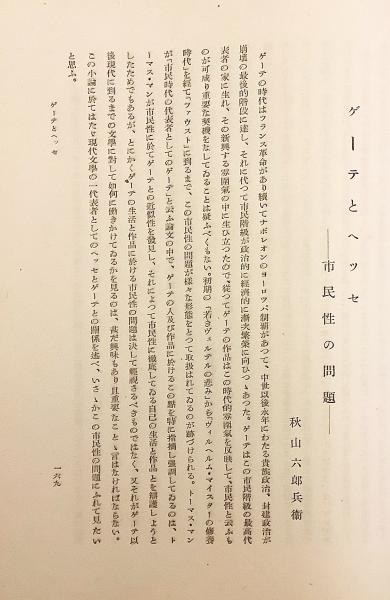 ゲーテとヘッセ
――市民性の問題
秋山六郎兵衞
ゲーテの時代はフランス革命があり續いてナポレオンのヨーロツパ制覇があつて、中世以後永年にわたる貴族政治、封建政治が
崩壞の最後的階段に達し、それに代つて市民階級が政治的に經濟的に漸次繁榮に向ひつゝあつた。ゲーテはこの市民階級の最高代
表者の家に生れ、その新興する雰圍氣の中に生ひ立つたので、從つてゲーテの作品はこの時代的雰圍氣を反映して、市民性と云ふも
のが可成り重要な契機をなしてゐることは疑ふべくもない。初期の「若きヴェルテルの悲み」から「ヴィルヘルム・マイスターの修養
時代」を經て「ファウスト」に到るまで、この市民性の問題が樣々な形態をとつて取扱はれてゐるのが跡づけられる。トーマス・マン
が「市民時代の代表者としてのゲーテ」と云ふ論文の中で、ゲーテの人及び作品に於けるこの點を特に指摘し强調してゐるのは、ト
ーマス・マンが市民性に於てゲーテとの近似性を發見し、それによつて市民性に徹底してゐる自己の生活と作品とを辯護しようと
したためでもあるが、とにかくゲーテの生活と作品に於ける市民性の問題は決して輕視さるべきものではなく、又それがゲーテ以
後現代に到るまでの文學に對して如何に働きかけてゐるかを見るのは、甚だ興味もあり且重要なことゝ言はなければならない。
この小論に於てはたゞ現代文學の一代表者としてのヘッセとゲーテとの關係を述べ、いさゝかこの市民性の問題にふれて見たい
と思ふ。
ゲーテとヘッセ
一六九